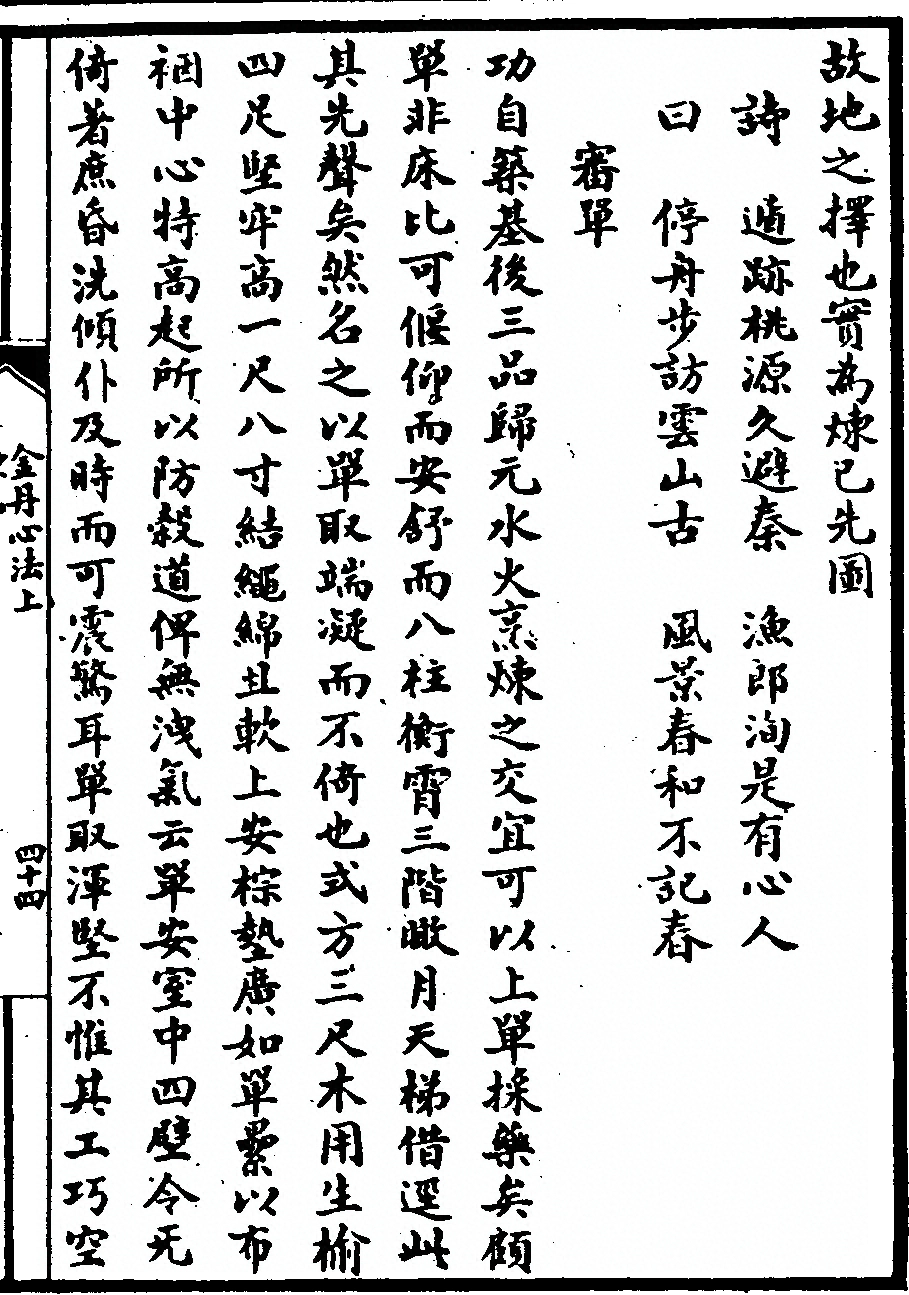 故地之擇也實為煉己先圖
詩　遁跡桃源久避秦　漁郎洵是有心人
曰　停舟步訪雲山古　風景春和不記春
審單
功自築基後三品歸元水火烹煉之交宜可以上單採藥矣顧
單非床比可偃仰而安舒而八柱衝霄三階瞰月天梯借逕此
其先聲矣然名之以單取端凝而不倚也式方三尺木用生榆
四足堅牢高一尺八寸結繩綿且軟上安棕墊廣如單纍以布
裀中心特高起所以防穀道俾無洩氣云單安室中四壁令无
倚著庶昏洗傾仆及時而可震驚耳單取渾堅不惟其工巧空
金丹心法上
四十四